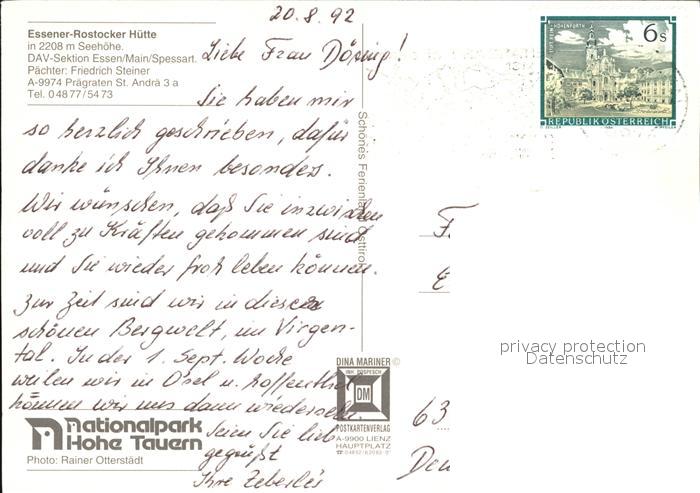 20.8.92
Essener-Rostocker Hütte
in 2208 m Seehöhe.
DAV-Sektion Essen/Main/Spessart.
Pächter: Friedrich Steiner
A-9974 Prägraten St. Andrä 3 a
Tel. 04877/5473
Liebe Frau Döring!
Sie haben mir
so herzlich geschrieben, dafür
danke ich Ihnen besonders.
Wir wünschen, daß Sie inzwischen
voll zu Kräften gekommen sind
und Sie wieder froh leben können.
Zur Zeit sind wir in dieser
schönen Bergwelt, im Virgen-
tal. In der 1. Sept. Woche
weilen wir in u. hoffentlich
können wir uns dann wiedersehn.
Seien Sie lieb
gegrüßt
Ihre Zeberle's
Nationalpark
Hohe Tauern
Photo: Rainer Otterstädt
Schönes Ferienland Osttirol
DINA MARINER ©
INH. POSPESCH
DM
POSTKARTENVERLAG
A-9900 LIENZ
HAUPTPLATZ
6 S
REPUBLIK ÖSTERREICH
F.
E
63
Deu
privacy protection
Datenschutz